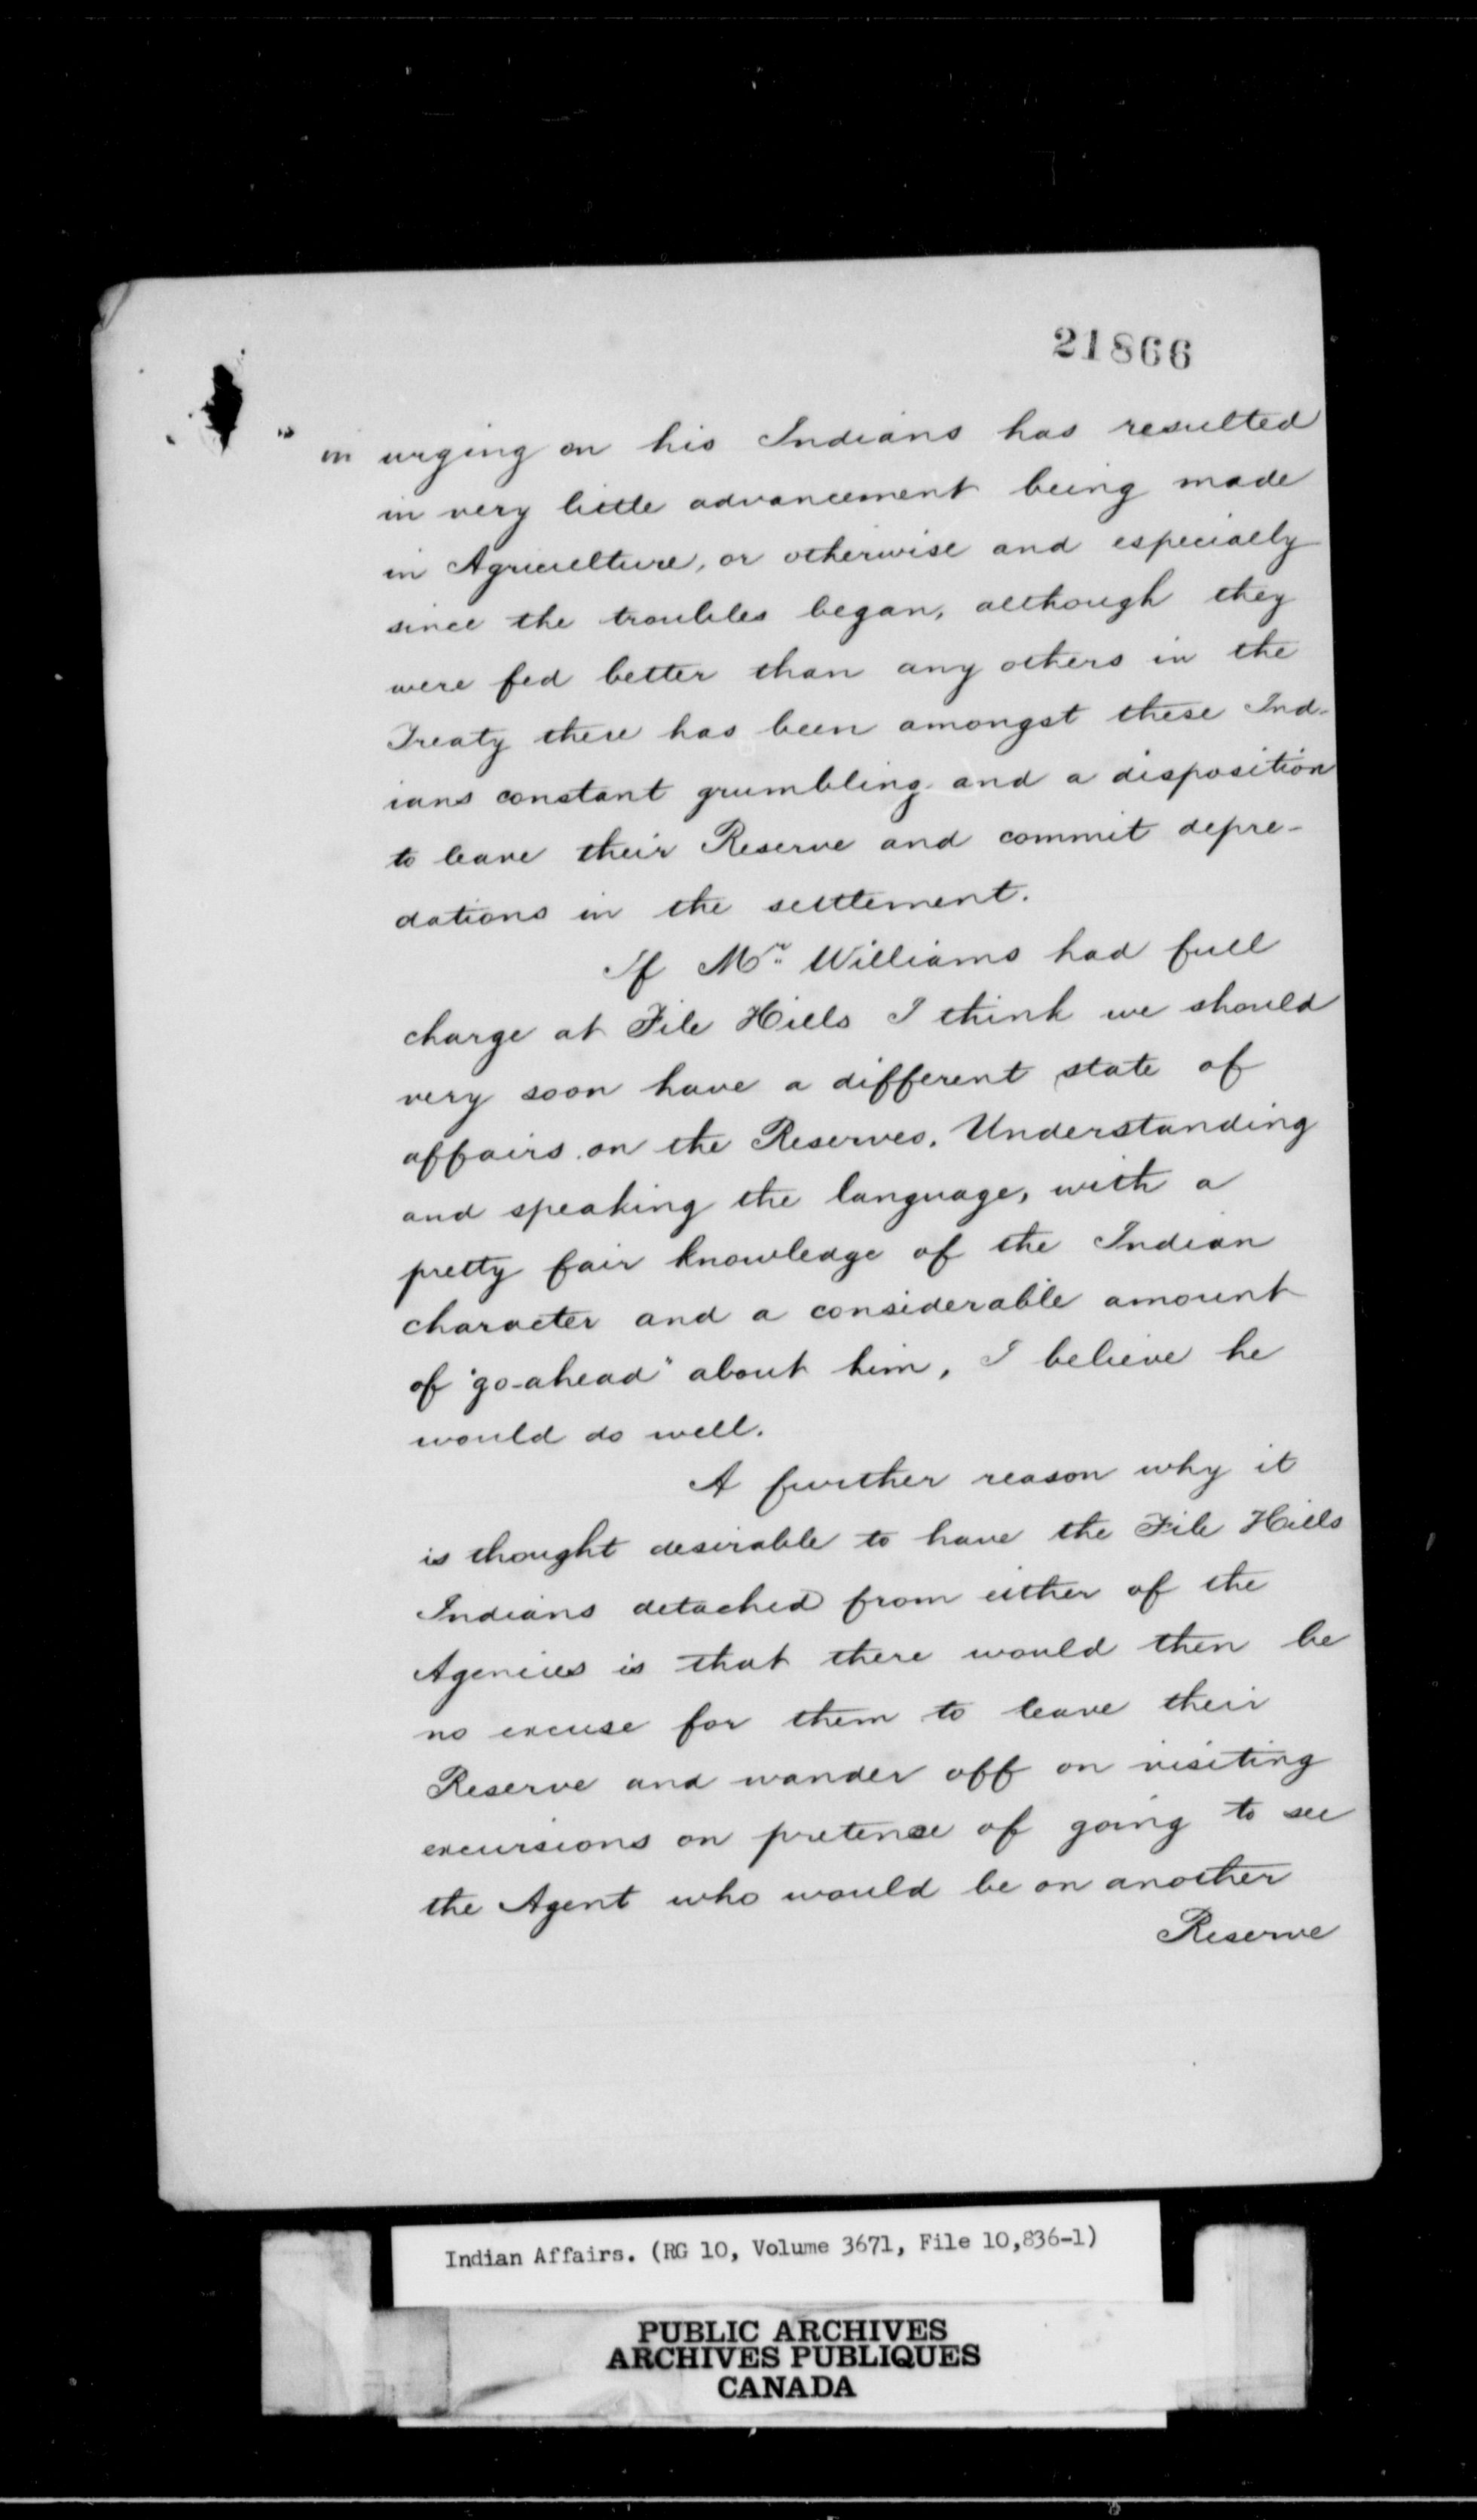 21866
in urging on his Indians has resulted
in very little advancement being made
in Agriculture, or otherwise and especially
since the troubles began, although they
were fed better than any others in the
Treaty there has been amongst these Ind-
ians constant grumbling and a disposition
to leave their Reserve and commit depre-
dations in the settlement.
If Mr. Williams had full
charge at File Hills I think we should
very soon have a different state of
affairs on the Reserves. Understanding
and speaking the language, with a
pretty fair knowledge of the Indian
character and a considerable amount
of "go-ahead" about him, I believe he
would do well.
A further reason why it
is thought desirable to have the File Hills
Indians detached from either of the
Agencies is that there would then be
no excuse for them to leave their
Reserve and wander off on visiting
excursions on pretence of going to see
the Agent who would be on another
Reserve
Indian Affairs. (RG 10, Volume 3671, File 10,836-1)
PUBLIC ARCHIVES
ARCHIVES PUBLIQUES
CANADA